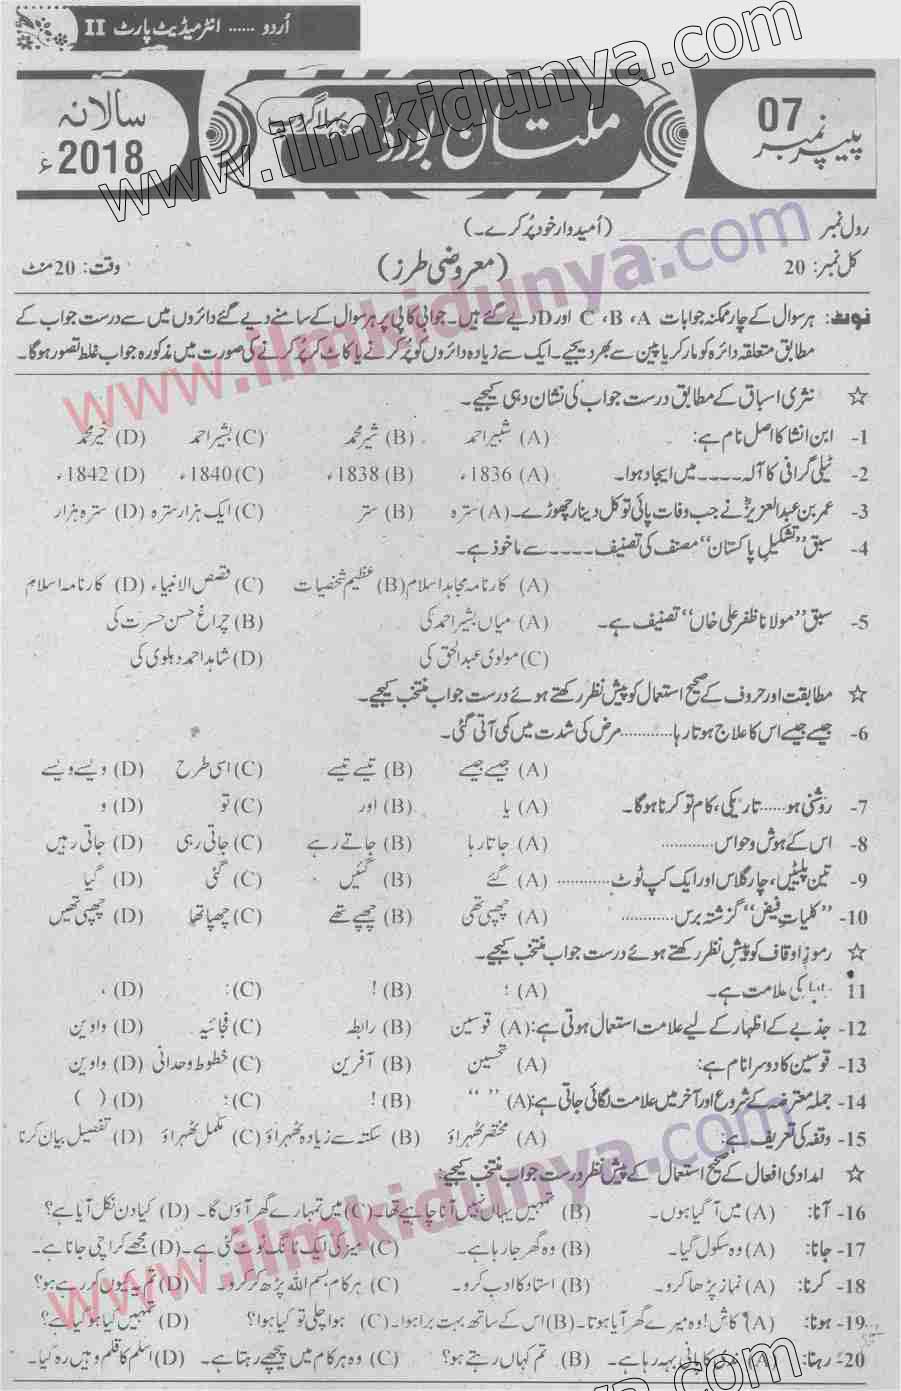 اُردو ...... انٹرمیڈیٹ پارٹ II
پیپر نمبر 07
ملتان بورڈ
پہلا گروپ
سالانہ 2018ء
www.ilmkidunya.com
رول نمبر ــــــــــــــــــ (اُمیدوار خود پُر کرے۔)
کل نمبر: 20 (معروضی طرز) وقت: 20 منٹ
نوٹ: ہر سوال کے چار ممکنہ جوابات A، B، C اور D دیے گئے ہیں۔ جوابی کاپی پر ہر سوال کے سامنے دیے گئے دائروں میں سے درست جواب کے
مطابق متعلقہ دائرہ کو مارکر یا پین سے بھر دیجیے۔ ایک سے زیادہ دائروں کو پُر کرنے یا کاٹ کر پُر کرنے کی صورت میں مذکورہ جواب غلط تصور ہوگا۔
☆ نثری اسباق کے مطابق درست جواب کی نشان دہی کیجیے۔
1- ابن انشا کا اصل نام ہے: (A) شبیر احمد (B) شیر محمد (C) بشیر احمد (D) خیر محمد
2- ٹیلی گرافی کا آلہ ۔۔۔۔ میں ایجاد ہوا۔ (A) 1836ء (B) 1838ء (C) 1840ء (D) 1842ء
3- عمر بن عبدالعزیزؒ نے جب وفات پائی تو کل دینار چھوڑے۔ (A) سترہ (B) ستر (C) ایک ہزار سترہ (D) سترہ ہزار
4- سبق ”تشکیلِ پاکستان“ مصنف کی تصنیف ۔۔۔۔ سے ماخوذ ہے۔
(A) کارنامہ مجاہد اسلام (B) عظیم شخصیات (C) قصص الانبیاء (D) کارنامہ اسلام
5- سبق ”مولانا ظفر علی خاں“ تصنیف ہے۔ (A) میاں بشیر احمد کی (B) چراغ حسن حسرت کی
(C) مولوی عبدالحق کی (D) شاہد احمد دہلوی کی
☆ مطابقت اور حروف کے صحیح استعمال کو پیش نظر رکھتے ہوئے درست جواب منتخب کیجیے۔
6- جیسے جیسے اس کا علاج ہوتا رہا ............ مرض کی شدت میں کمی آتی گئی۔
(A) جیسے جیسے (B) تیسے تیسے (C) اسی طرح (D) ویسے ویسے
7- روشنی ہو ...... تاریکی، کام تو کرنا ہوگا۔ (A) یا (B) اور (C) تو (D) و
8- اس کے ہوش و حواس ............ (A) جاتا رہا (B) جاتے رہے (C) جاتی رہی (D) جاتی رہیں
9- تین پلیٹیں، چار گلاس اور ایک کپ ٹوٹ ............ (A) گئے (B) گئیں (C) گئی (D) گیا
10- ”کلیاتِ فیض“ گزشتہ برس ............ (A) چھپی تھی (B) چھپے تھے (C) چھپا تھا (D) چھپی تھیں
☆ رموزِ اوقاف کو پیش نظر رکھتے ہوئے درست جواب منتخب کیجیے۔
11 کی علامت ہے۔ (A) ؛ (B) ! (C) : (D) ،
12- جذبے کے اظہار کے لیے علامت استعمال ہوتی ہے: (A) قوسین (B) رابطہ (C) فجائیہ (D) واوین
13- قوسین کا دوسرا نام ہے: (A) تحسین (B) آفرین (C) خطوط وحدانی (D) واوین
14- جملہ معترضہ کے شروع اور آخر میں علامت لگائی جاتی ہے: (A) ” “ (B) ! (C) ؛ (D) ( )
15- وقفہ کی تعریف ہے: (A) مختصر ٹھہراؤ (B) سکتہ سے زیادہ ٹھہراؤ (C) مکمل ٹھہراؤ (D) تفصیل بیان کرنا
☆ امدادی افعال کے صحیح استعمال کے پیش نظر درست جواب منتخب کیجیے:
16- آنا: (A) میں آ گیا ہوں۔ (B) تمہیں یہاں نہیں آنا چاہیے تھا۔ (C) میں تمہارے گھر آؤں گا۔ (D) کیا دن نکل آیا ہے؟
17- جانا: (A) وہ سکول گیا۔ (B) وہ گھر جا رہا ہے۔ (C) میز کی ایک ٹانگ ٹوٹ گئی ہے۔ (D) مجھے کراچی جانا ہے۔
18- کرنا: (A) نماز پڑھا کرو۔ (B) استاد کا ادب کرو۔ (C) ہر کام، بسم اللہ پڑھ کر کرو۔ (D) تم یہ کیوں کر رہے ہو؟
19- ہونا: (A) کاش! وہ میرے گھر آیا ہوتا۔ (B) اس کے ساتھ بہت برا ہوا۔ (C) ہوا چلی تو کیا ہوا؟ (D) تمہیں کیا ہو گیا ہے؟
20- رہنا: (A) ندی کا پانی بہہ رہا ہے۔ (B) تم کہاں رہتے ہو؟ (C) وہ ہر کام میں پیچھے رہتا ہے۔ (D) اسلم کا قلم وہیں رہ گیا۔